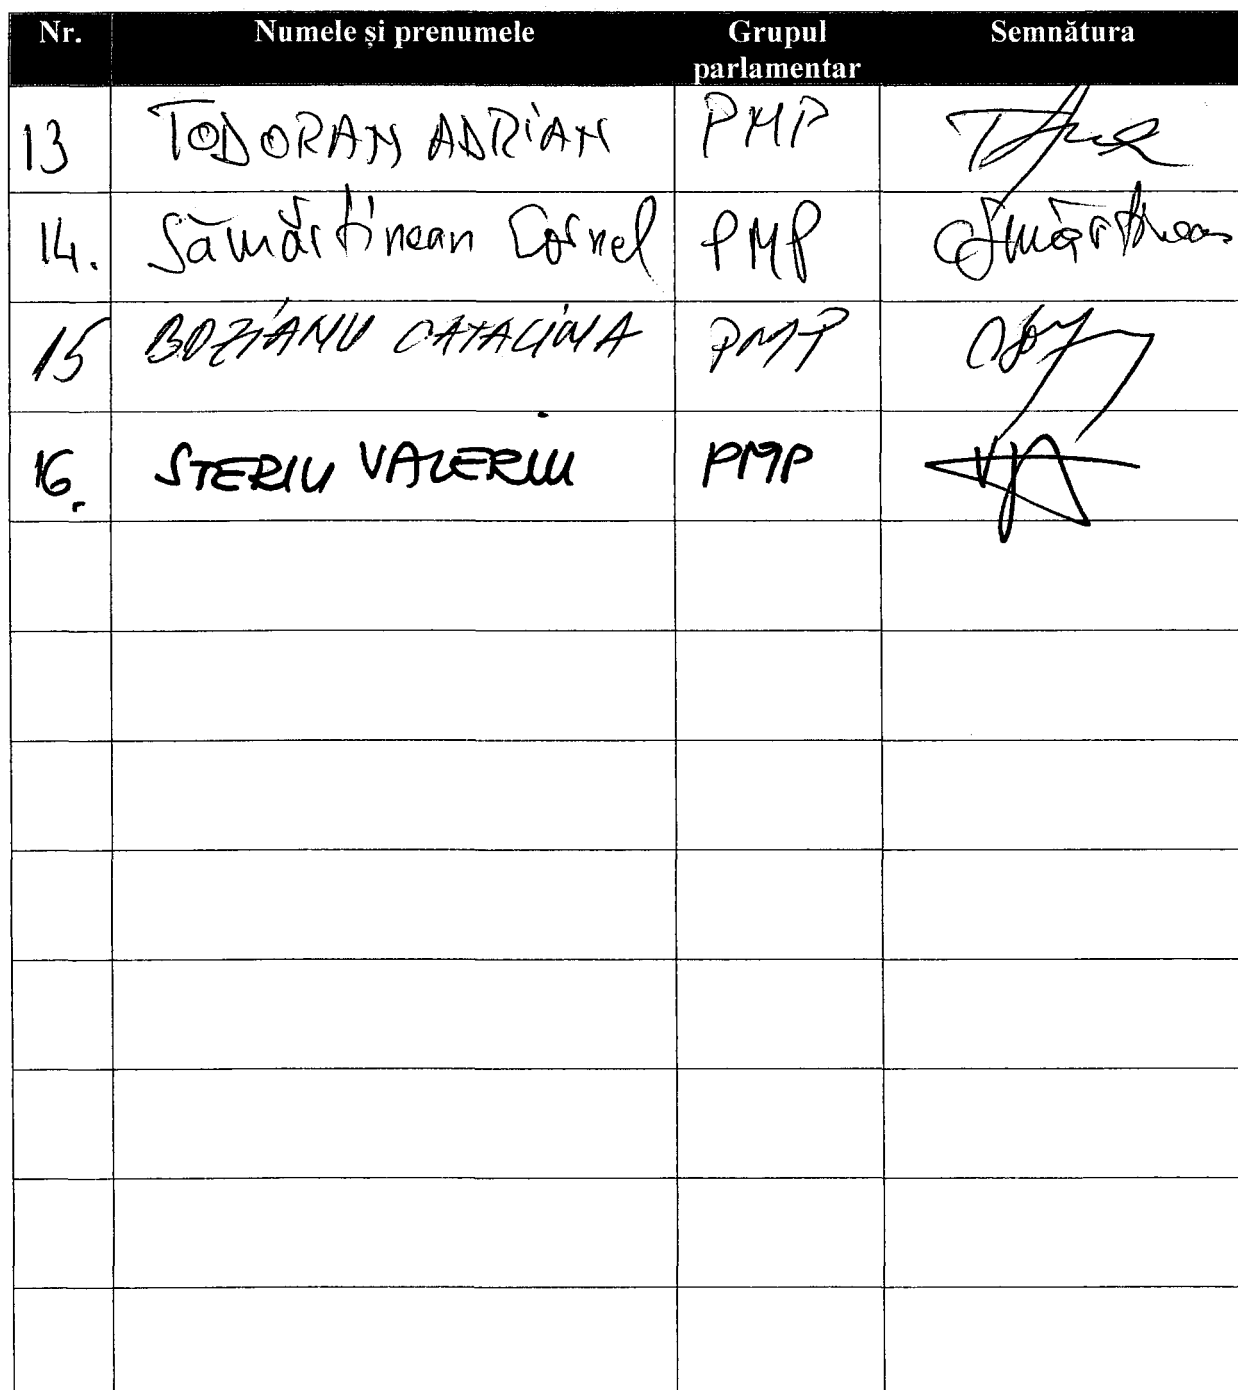 Nr. Numele și prenumele Grupul parlamentar Semnătura
13 TODORAN ADRIAN PMP
14. Sămărtinean Cornel PMP Sămărtinean
15 BOZIANU CATALINA PMP
16. STERIU VALERIU PMP